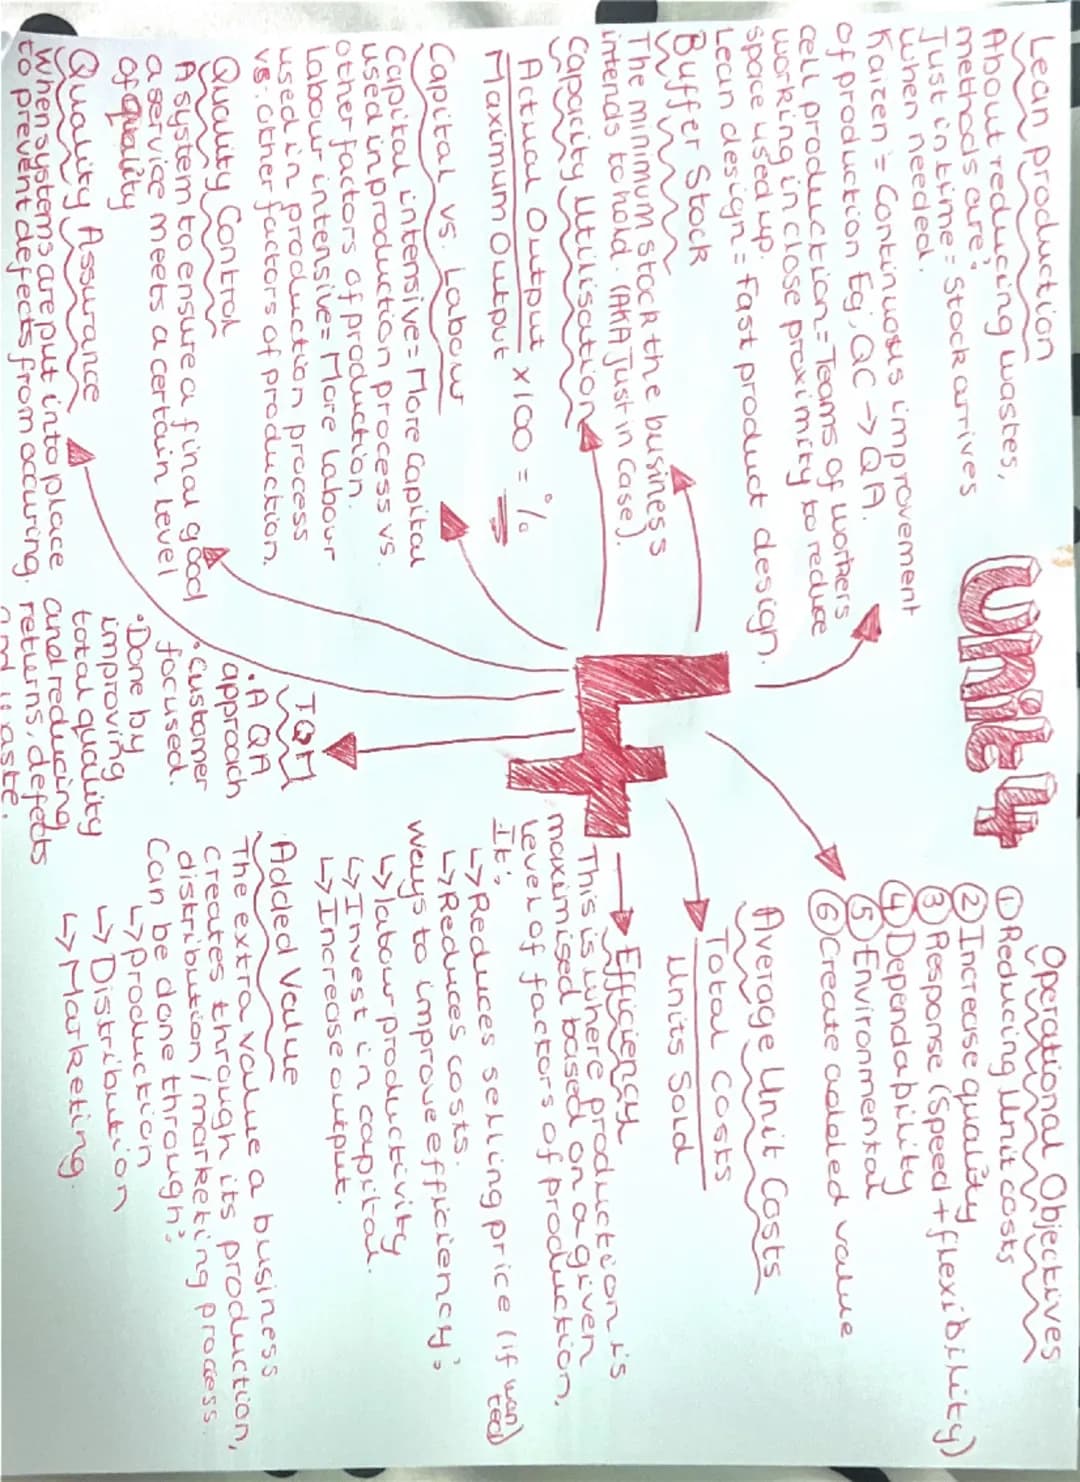 Unit 4
Lean production
About reducing wastes,
methods are;
Just in time = Stock arrives
when needed.
Kaizen = Continuous improvement
of production Eg, QC → QA.
cell production = Teams of workers
working in close proximity to reduce
space used up.
Lean design = fast product design.
Buffer Stock
The minimum stock the business
intends to hold. (AKA Just in case).
Capacity Utilisation
Actual Output
Maximum Output × 100 = %
Capital vs. Labour
Capital intensive = More Capital
used in production process vs.
other factors of production.
Labour intensive = More labour
used in production process
vs. other factors of production.
Quality Control
A system to ensure a final good
a service meets a certain level
of quality
Quality Assurance
When systems are put into place
to prevent defects from occuring.
TQM
• A QA
approach
• Customer
focused.
• Done by
improving
total quality
and reducing
returns, defects
and waste.
4
Operational Objectives
① Reducing Unit costs
② Increase quality
③ Response (Speed + flexibility)
④ Dependability
⑤ Environmental
⑥ Create added value
Average Unit Costs
Total Costs
Units Sold
→ Efficiency
This is where production is
maximised based on a given
level of factors of production,
It;
↳ Reduces selling price (if wanted)
↳ Reduces costs.
Ways to improve efficiency;
↳ labour productivity
↳ Invest in capital.
↳ Increase output.
Added Value
The extra value a business
creates through its production,
distribution / marketing process.
Can be done through;
↳ production
↳ Distribution
↳ Marketing.